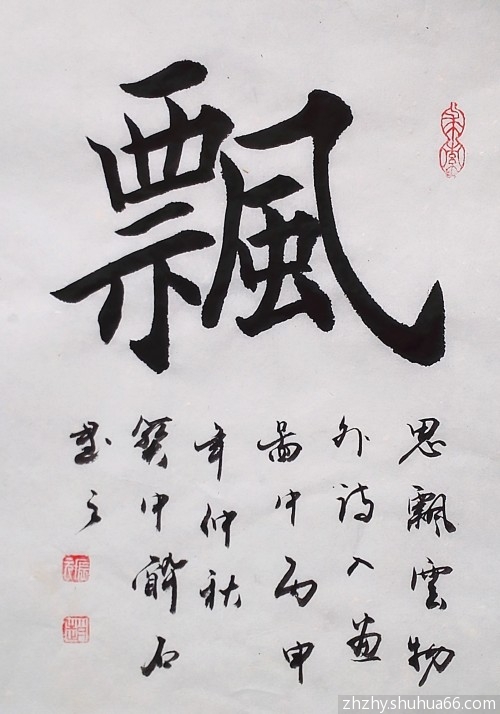 飄
思飄雲物
外詩入畫
圖中丙申
年仲秋
中醉石
書之
zhzhy.shuhua66.com